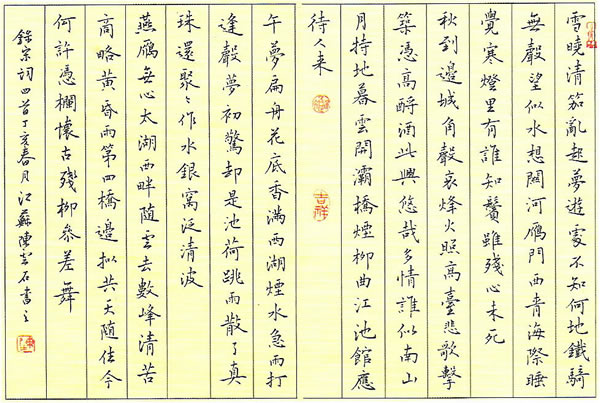 雪曉清笳亂起夢遊處不知何地鐵騎
無聲望似水想關河雁門西青海際睡
覺寒燈里有誰知鬢雖殘心未死
秋到邊城角聲哀烽火照高臺悲歌擊
築憑高酹酒此興悠哉多情誰似南山
月特地暮雲開灞橋煙柳曲江池館應
待人来
吉祥
午夢扁舟花底香滿西湖煙水急雨打
逢聲夢初驚却是池荷跳雨散了真
珠還聚〻作水銀窩泛清波
燕雁無心太湖西畔随雲去數峰清苦
商略黃昏雨第四橋邊拟共天随住今
何許憑欄懷古殘柳參差舞
錄宋詞四首丁亥春月江蘇陳石書之